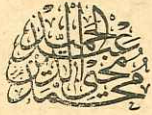 محمد
محيى الدين
عبد الحميد